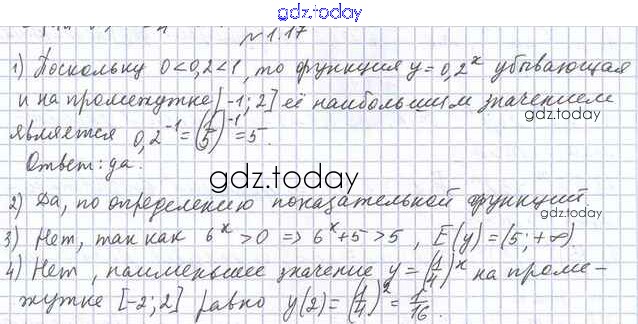 gdz.today
№1.17
1) Поскольку 0<0,2<1, то функция y=0,2^x убывающая
и на промежутке [-1; 2] её наибольшим значением
gdz.today
является 0,2^-1 = (1/5)^-1 = 5.
Ответ: да.
gdz.today
2) Да, по определению показательной функций.
gdz.today
3) Нет, так как 6^x > 0 => 6^x+5 > 5, E(y) = (5; +∞).
4) Нет, наименьшее значение y = (1/4)^x на проме-
жутке [-2; 2] равно y(2) = (1/4)^2 = 1/16.